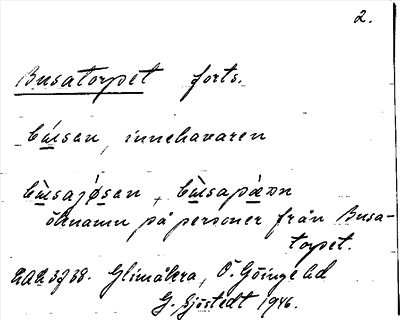 2.
Busatorpet forts.
bu̲san, innehavaren
bu̲sajo̲san, bu̲sapæ̲n
öknamn på personer från Busa-
torpet.
Glimåkra, Ö. Göinge hd
G. Sjöstedt 1946.